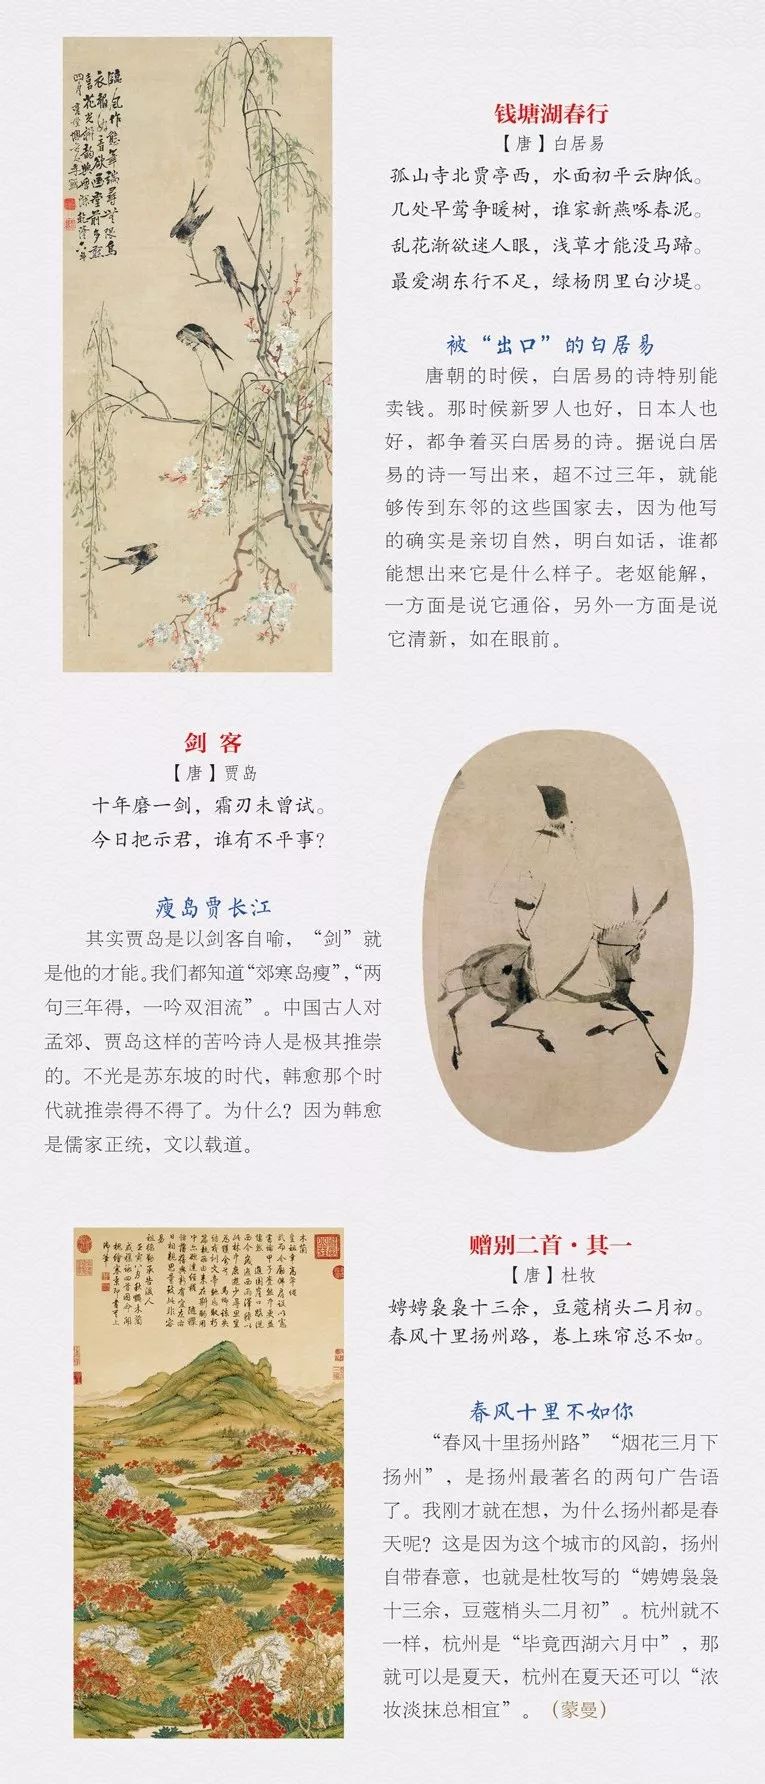 钱塘湖春行
【唐】白居易
孤山寺北贾亭西，水面初平云脚低。
几处早莺争暖树，谁家新燕啄春泥。
乱花渐欲迷人眼，浅草才能没马蹄。
最爱湖东行不足，绿杨阴里白沙堤。
被“出口”的白居易
唐朝的时候，白居易的诗特别能
卖钱。那时候新罗人也好，日本人也
好，都争着买白居易的诗。据说白居
易的诗一写出来，超不过三年，就能
够传到东邻的这些国家去，因为他写
的确实是亲切自然，明白如话，谁都
能想出来它是什么样子。老妪能解，
一方面是说它通俗，另外一方面是说
它清新，如在眼前。
剑 客
【唐】贾岛
十年磨一剑，霜刃未曾试。
今日把示君，谁有不平事？
瘦岛贾长江
其实贾岛是以剑客自喻，“剑”就
是他的才能。我们都知道“郊寒岛瘦”，“两
句三年得，一吟双泪流”。中国古人对
孟郊、贾岛这样的苦吟诗人是极其推崇
的。不光是苏东坡的时代，韩愈那个时
代就推崇得不得了。为什么？因为韩愈
是儒家正统，文以载道。
赠别二首·其一
【唐】杜牧
娉娉袅袅十三余，豆蔻梢头二月初。
春风十里扬州路，卷上珠帘总不如。
春风十里不如你
“春风十里扬州路”“烟花三月下
扬州”，是扬州最著名的两句广告语
了。我刚才就在想，为什么扬州都是春
天呢？这是因为这个城市的风韵，扬州
自带春意，也就是杜牧写的“娉娉袅袅
十三余，豆蔻梢头二月初”。杭州就不
一样，杭州是“毕竟西湖六月中”，那
就可以是夏天，杭州在夏天还可以“浓
妆淡抹总相宜”。（蒙曼）